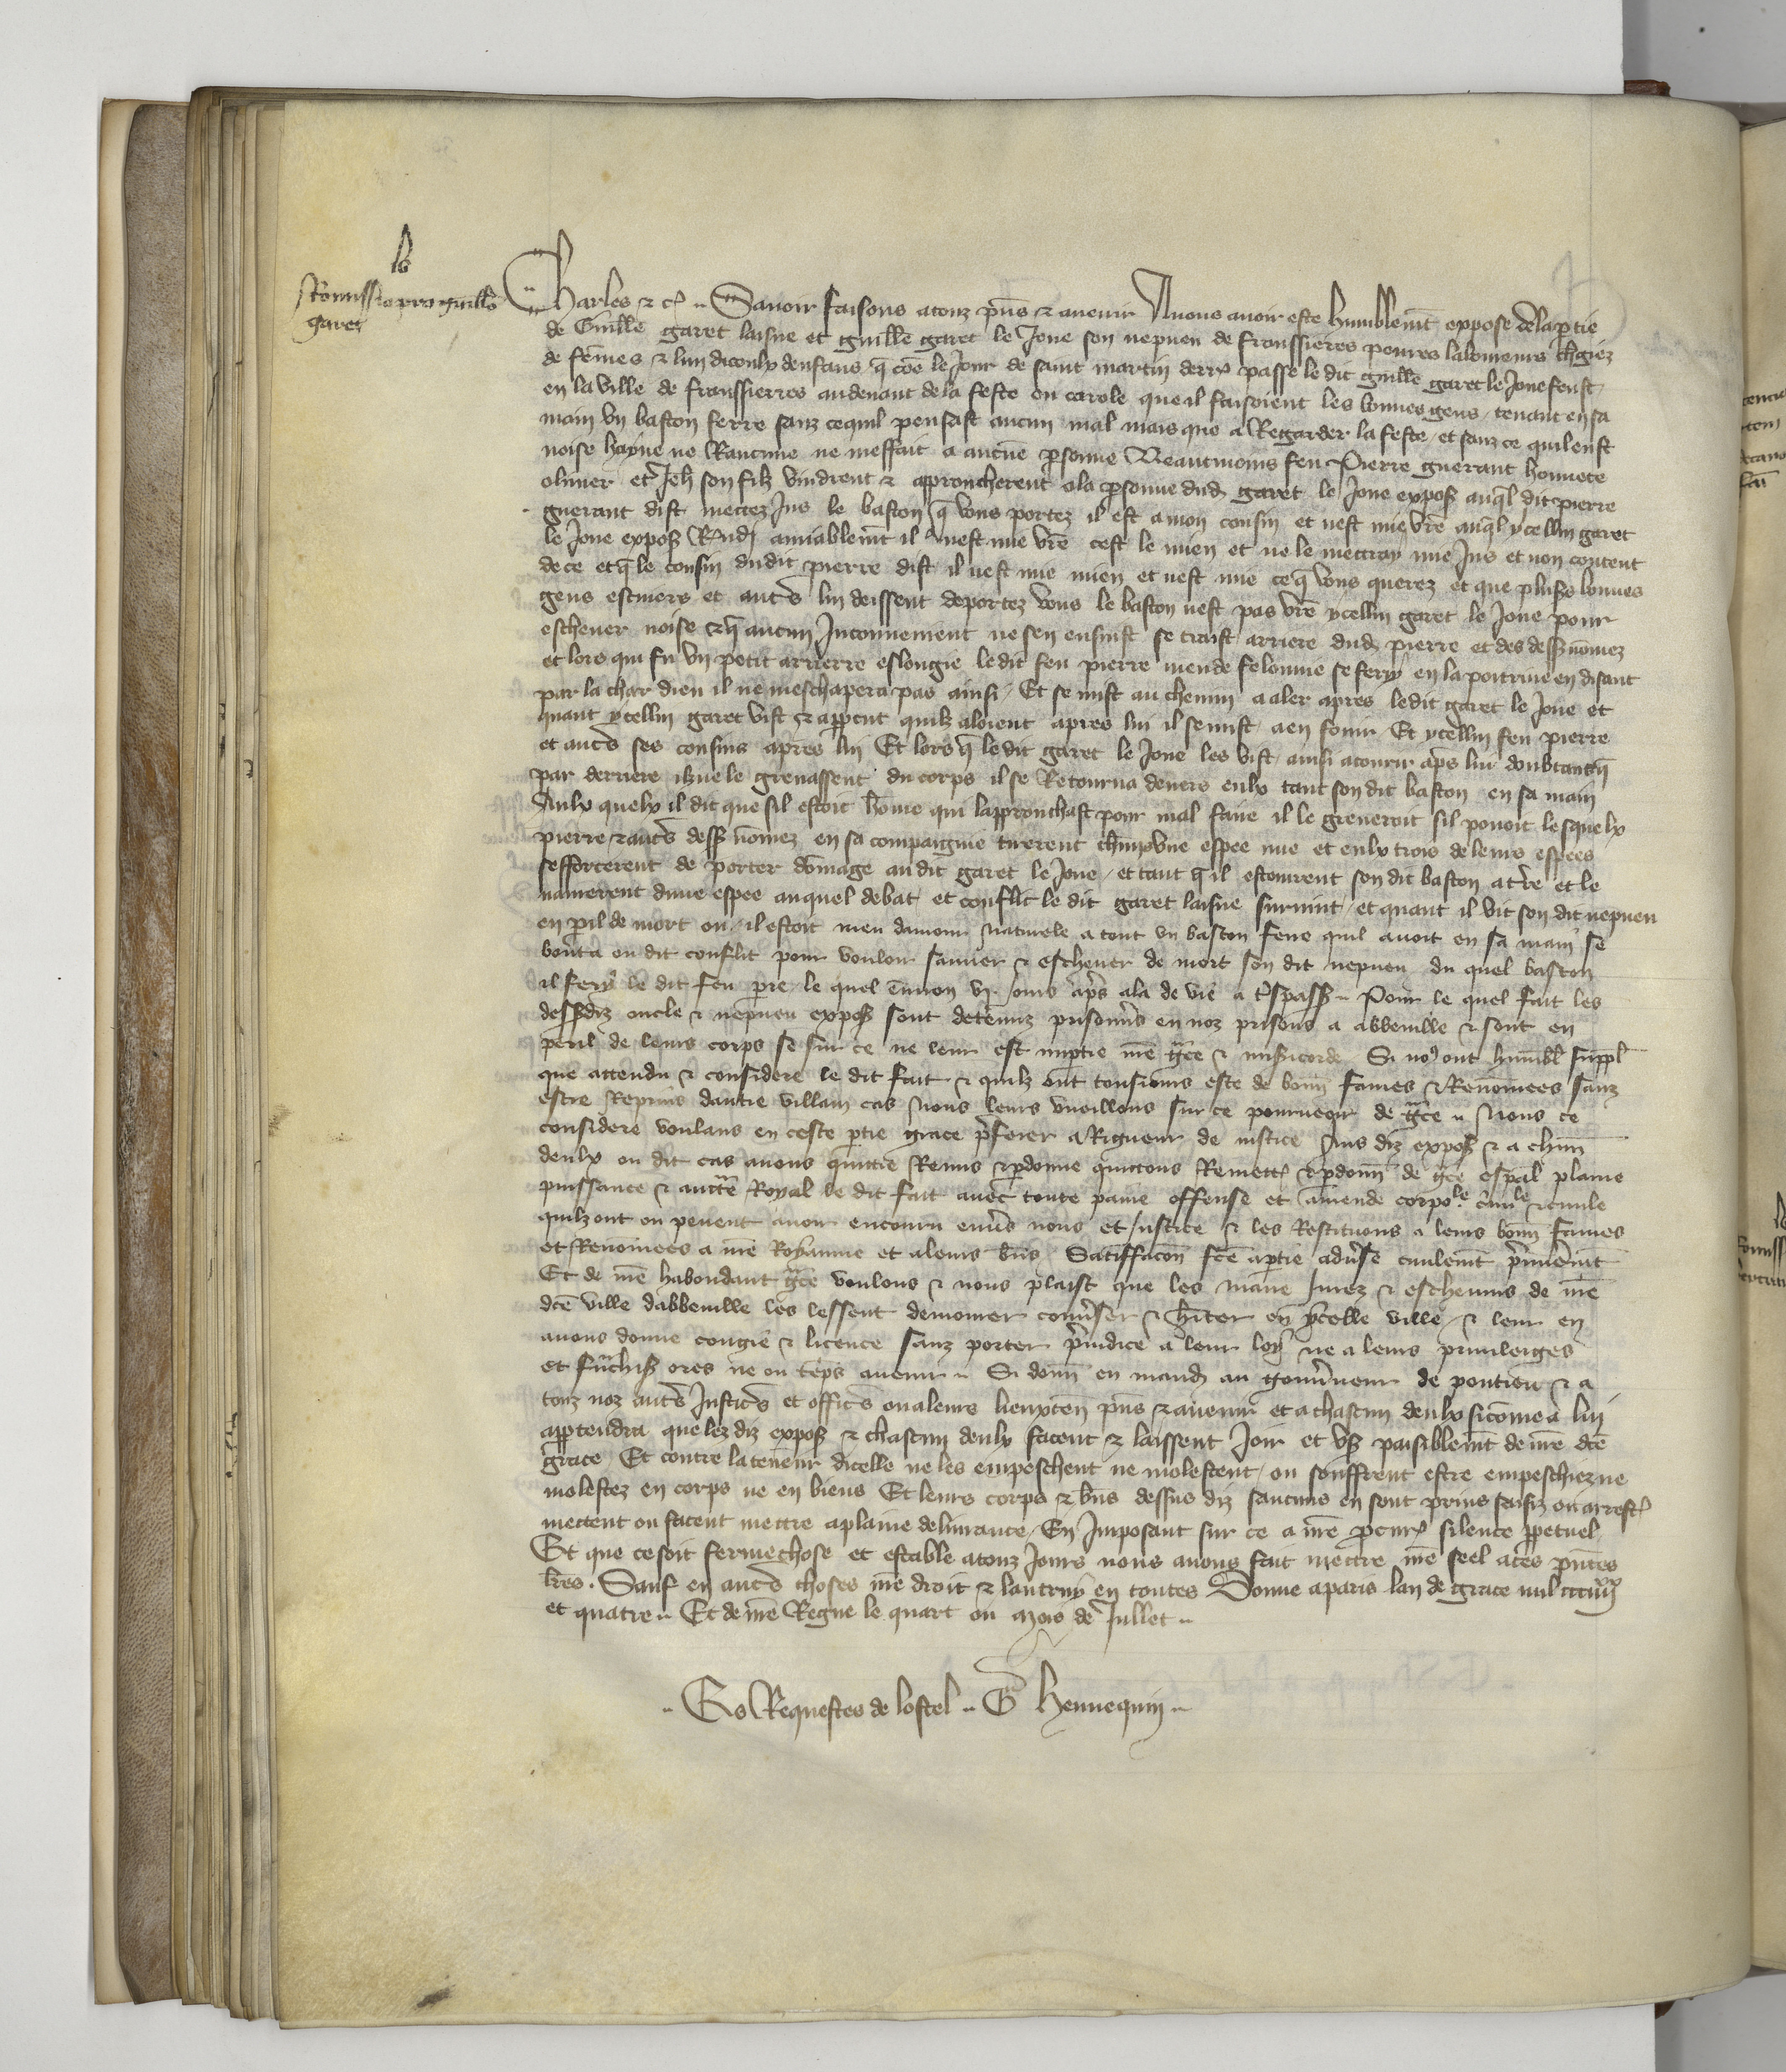 lb
Remissio pro guillo
garet
Charles &c. Savoir faisons a touz pns & avenir A nous avoir este humblemt expose de la ptie
de Guille garet laisne et guille garet le Jone son nepveu de franssieres povres laboureurs chgiez
de femes & lun diceulx denfans q coe le Jour de saint martin derr passe le dit guille garet le Jone feust
en la ville de franssierres au devant de la feste ou carole que il faisoient les bonnes gens tenant en sa
main un baston ferre sanz ce quil pensast aucun mal mais que a Regarder la feste et sanz ce quil eust
noise hayne ne Rancune ne meffait a aucune psonne Neantmoins feu Pierre guerant
olivier et Jeh son filz vindrent & approucherent a la psonne dud garet le Jone expos auql dit pierre
guerant dist mettez Jus le baston q vous portez il est a mon cousin et nest mie vre auql ycellui garet
le Jone expos Rndi amiablemt il nest mie vre cest le mien et ne le mettray mie Jus et non content
de ce et q le cousin dudit pierre dist il nest mie mien et nest mie ce q vous querez et que plus bonnes
gens escuiers et autres lui deissent deportez vous le baston nest pas vre ycellui garet le Jone pour
eschever noise & q aucun Inconvenient ne sen ensuist se traist arriere dud pierre et des dess nomez
et lors qui fu un petit arrierre eslongie ledit feu pierre meu de felonnie se fery en la poitrine en disant
par la char dieu il ne meschapera pas ainsi Et se mist au chemin a aler apres ledit garet le Jone et
quant ycellui garet vist & appcut quilz aloient apres lui il se mist a en fouir Et ycellui feu pierre
et autres ses cousins apres lui Et lors q ledit garet le Jone les vist ainsi acourir aps lui doubtant q
par derriere ilz ne le grevassent du corps il se Retourna devers eulx tant son dit baston en sa main
Aulx quelx il dit que sil estoit home qui lapprouchast pour mal faire il le greveroit sil povoit lesquelx
pierre & autres dess nomez en sa compaignie tirerent chun une espee nue et eulx trois de leurs espees
sefforcerent de porter domage au dit garet le Jone et tant q il estourent son dit baston a tre et le
navrerent dune espee auquel debat et conflit le dit garet laisne survint et quant il vit son dit nepveu
en pil de mort ou il estoit meu damour naturele a tout un baston ferre quil avoit en sa main se
bouta ou dit conflit pour vouloir sauver & eschever de mort son dit nepveu du quel baston
il fery le dit feu pre le quel environ vj. jours aps ala de vie a tspass Pour le quel fait les
dessdiz oncle & nepveu expos sont detenuz prisonners en noz prisons a abbeville & sont en
peril de leurs corps se sur ce ne leur est imptie nre gce & misicorde Si nous ont humbl suppl
que attendu & considere le dit fait & quilz ont tousiours este de bonn fames & Renomees sanz
estre Reprins dautre villain cas Nous leurs vueillons sur ce pourveoir de gce Nous ce
considere voulans en ceste ptie grace pferer a Rigueur de iustice Aus diz expos & a chun
deulx ou dit cas avons quittie Remis & pdonne quittons Remettons & pdonn de gce espal plaine
puissance & auctte Royal le dit fait avec toute paine offense et amende corpole crimle & civile
quilz ont ou pevent avoir encouru envers nous et justice & les Restituons a leurs bonn fames
et Renomees a nre Royaume et a leurs bns Satiffacon fce a ptie adverse civilemt primieremt
Et de nre habondant gce voulons & nous plaist que les maire Jurez & eschevins de nre
dce ville dabbeville les lessent demourer converser & habiter en ycelle ville & leur en
avons donne congie & licence sanz porter preiudice a leur loy ne a leurs privileiges
et franchis ores ne ou teps avenir Si donn en mand au gouverneur de pontieu & a
touz noz autres Justicrs et officrs ou a leurs lieuxten pns & avenir et a chascun deulx si come a lui
apptendra que lez diz expos & chascun deulx facent & laissent Joir et us paisiblemt de nre dce
grace Et contre la teneur dicelle ne les empeschent ne molestent ou souffrent estre empeschiez ne
molestez en corps ne en biens Et leurs corps & bns dessus diz saucuns en sont prins saisiz ou arrest
mettent ou facent mettre a plaine delivrance En Imposant sur ce a nre pcur silence ppetuel
Et que ce soit ferme chose et estable a touz Jours nous avons fait mettre nre seel a ces pntes
lres. Sauf en autres choses nre droit & lautruy en toutes Donne a paris lan de grace mil ccc iiiixx
et quatre Et de nre Regne le quart ou mois de Jullet
Es Requestes de lostel G Hennequin